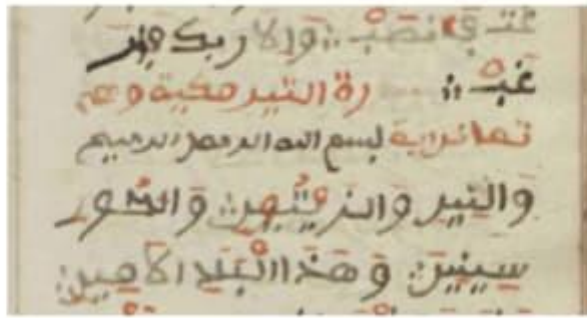 غت فانصب وإلى ربك فار
غب
رة التين مكية وهي
ثمان اية بسم الله الرحمن الرحيم
والتين والزيتون وطور
سينين وهذا البلد الامين